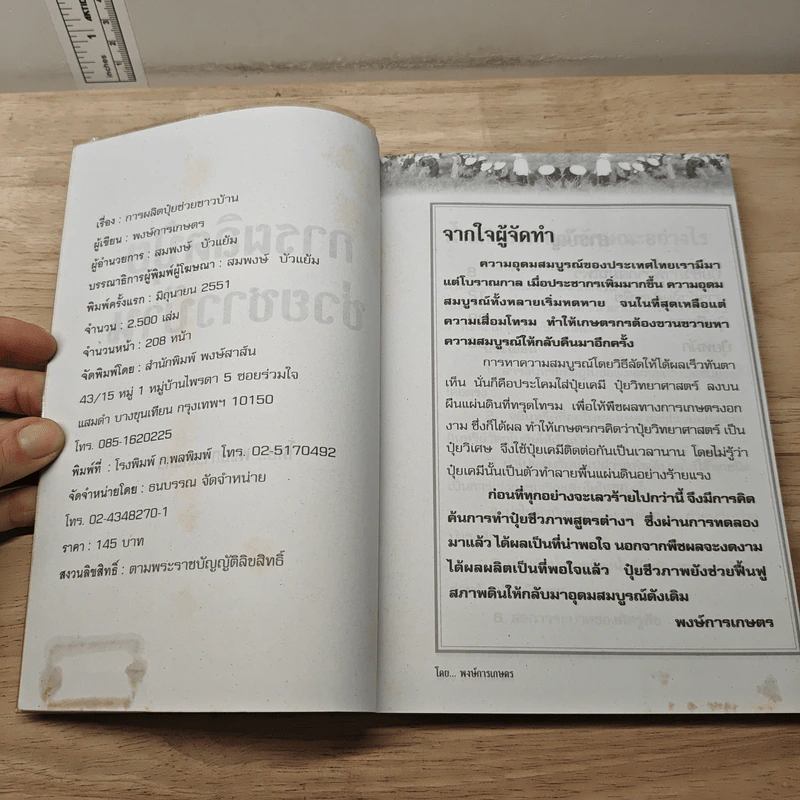 เรื่อง : การผลิตปุ๋ยช่วยชาวบ้าน
ผู้เขียน : พงษ์การเกษตร
ผู้อำนวยการ : สมพงษ์ บัวแย้ม
บรรณาธิการผู้พิมพ์ผู้โฆษณา : สมพงษ์ บัวแย้ม
พิมพ์ครั้งแรก : มิถุนายน 2551
จำนวน : 2,500 เล่ม
จำนวนหน้า : 208 หน้า
จัดพิมพ์โดย : สำนักพิมพ์ พงษ์สาส์น
43/15 หมู่ 1 หมู่บ้านไพรตา 5 ซอยร่วมใจ
แสมดำ บางขุนเทียน กรุงเทพฯ 10150
โทร. 085-1620225
พิมพ์ที่ : โรงพิมพ์ ก.พลพิมพ์ โทร. 02-5170492
จัดจำหน่ายโดย : ธนบรรณ จัดจำหน่าย
โทร. 02-4348270-1
ราคา : 145 บาท
สงวนลิขสิทธิ์ : ตามพระราชบัญญัติลิขสิทธิ์
จากใจผู้จัดทำ
ความอุดมสมบูรณ์ของประเทศไทยเรามีมา
แต่โบราณกาล เมื่อประชากรเพิ่มมากขึ้น ความอุดม
สมบูรณ์ทั้งหลายเริ่มหดหาย จนในที่สุดเหลือแต่
ความเสื่อมโทรม ทำให้เกษตรกรต้องขวนขวายหา
ความสมบูรณ์ให้กลับคืนมาอีกครั้ง
การหาความสมบูรณ์โดยวิธีลัดให้ได้ผลเร็วทันตา
เห็น นั่นก็คือประโคมใส่ปุ๋ยเคมี ปุ๋ยวิทยาศาสตร์ ลงบน
ผืนแผ่นดินที่ทรุดโทรม เพื่อให้พืชผลทางการเกษตรงอก
งาม ซึ่งก็ได้ผล ทำให้เกษตรกรคิดว่าปุ๋ยวิทยาศาสตร์ เป็น
ปุ๋ยวิเศษ จึงใช้ปุ๋ยเคมีติดต่อกันเป็นเวลานาน โดยไม่รู้ว่า
ปุ๋ยเคมีนั้นเป็นตัวทำลายพื้นแผ่นดินอย่างร้ายแรง
ก่อนที่ทุกอย่างจะเลวร้ายไปกว่านี้ จึงมีการคิด
ค้นการทำปุ๋ยชีวภาพสูตรต่างๆ ซึ่งผ่านการทดลอง
มาแล้ว ได้ผลเป็นที่น่าพอใจ นอกจากพืชผลจะงดงาม
ได้ผลผลิตเป็นที่พอใจแล้ว ปุ๋ยชีวภาพยังช่วยฟื้นฟู
สภาพดินให้กลับมาอุดมสมบูรณ์ดังเดิม
พงษ์การเกษตร
โดย... พงษ์การเกษตร